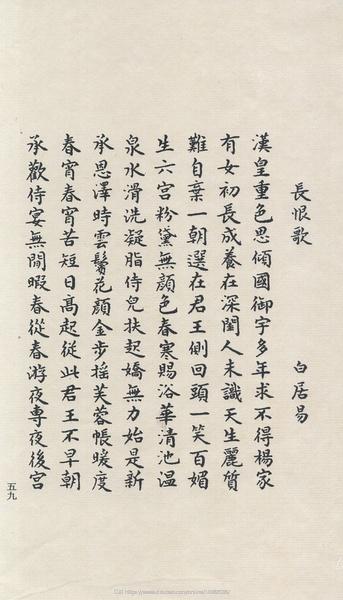 長恨歌
白居易
漢皇重色思傾國御宇多年求不得楊家
有女初長成養在深閨人未識天生麗質
難自棄一朝選在君王側回頭一笑百媚
生六宮粉黛無顏色春寒賜浴華清池温
泉水滑洗凝脂侍兒扶起嬌無力始是新
承恩澤時雲鬢花顏金步搖芙蓉帳暖度
春宵春宵苦短日高起從此君王不早朝
承歡侍宴無閒暇春從春游夜專夜後宮
五九